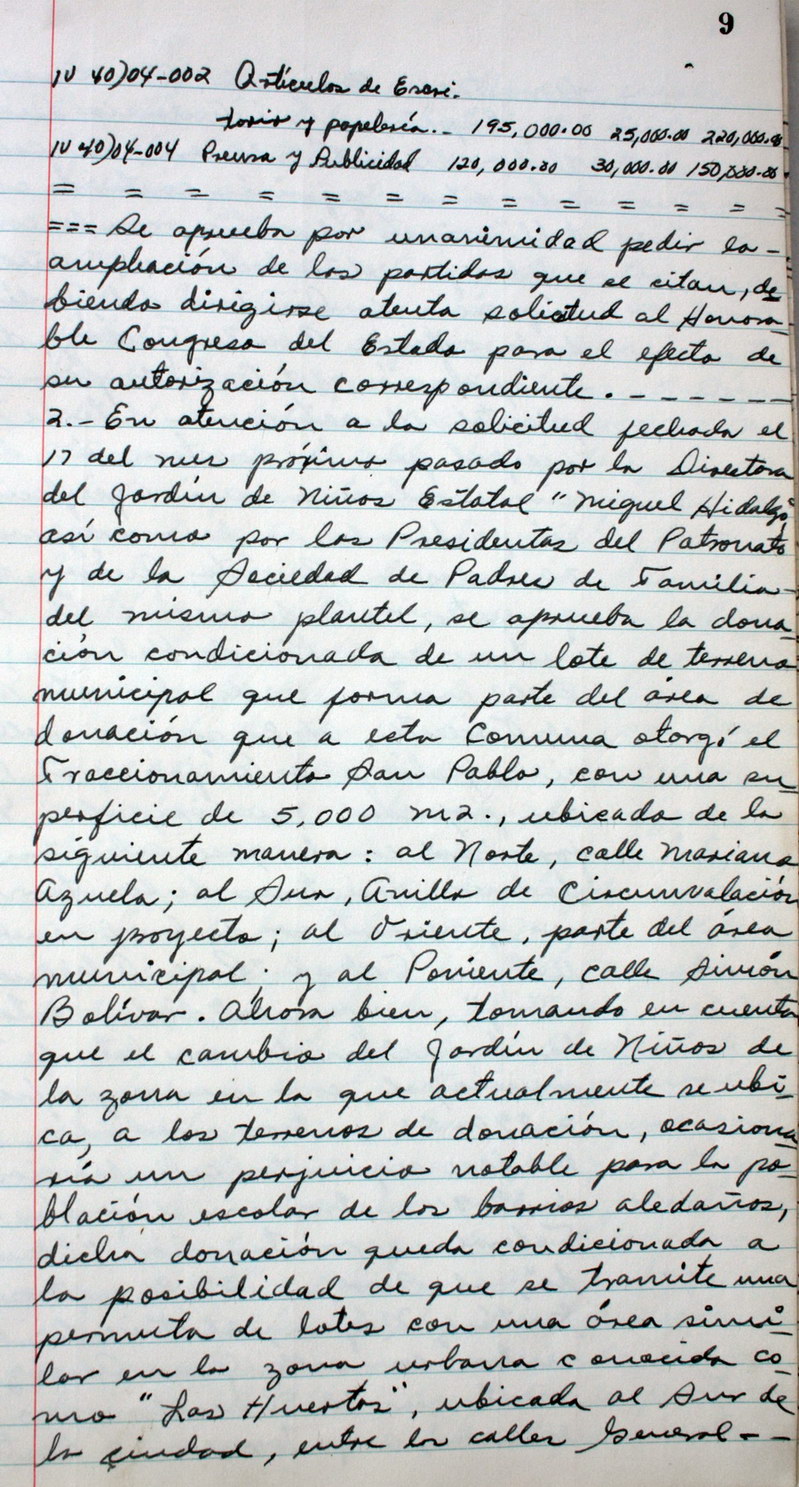 9
IV 40)04-002 Artículos de Escri-
torio y papelería.. 195,000.00 25,000.00 220,000.00
IV 40)04-004 Prensa y Publicidad 120,000.00 30,000.00 150,000.00
= = = = = = = = = = = =
=== Se aprueba por unanimidad pedir la -
ampliación de las partidas que se citan, de
biendo dirigirse atenta solicitud al Honora-
ble Congreso del Estado para el efecto de
su autorización correspondiente. - - - - - -
2.- En atención a la solicitud fechada el
17 del mes próximo pasado por la Directora
del Jardín de Niños Estatal "Miguel Hidalgo"
así como por las Presidentas del Patronato
y de la Sociedad de Padres de Familia-
del mismo plantel, se aprueba la dona-
ción condicionada de un lote de terreno
municipal que forma parte del área de
donación que a esta Comuna otorgó el
Fraccionamiento San Pablo, con una su
perficie de 5,000 m2., ubicado de la
siguiente manera: al Norte, calle Mariano
Azuela; al Sur, Anillo de Circunvalación
en proyecto; al Oriente, parte del área
municipal; y al Poniente, calle Simón
Bolívar. Ahora bien, tomando en cuenta
que el cambio del Jardín de Niños de
la zona en la que actualmente se ubi-
ca, a los terrenos de donación, ocasiona
ría un perjuicio notable para la po-
blación escolar de los barrios aledaños,
dicha donación queda condicionada a
la posibilidad de que se tramite una
permuta de lotes con una área simi-
lar en la zona urbana conocida co-
mo "Las Huertas", ubicada al Sur de
la ciudad, entre las calles General - -